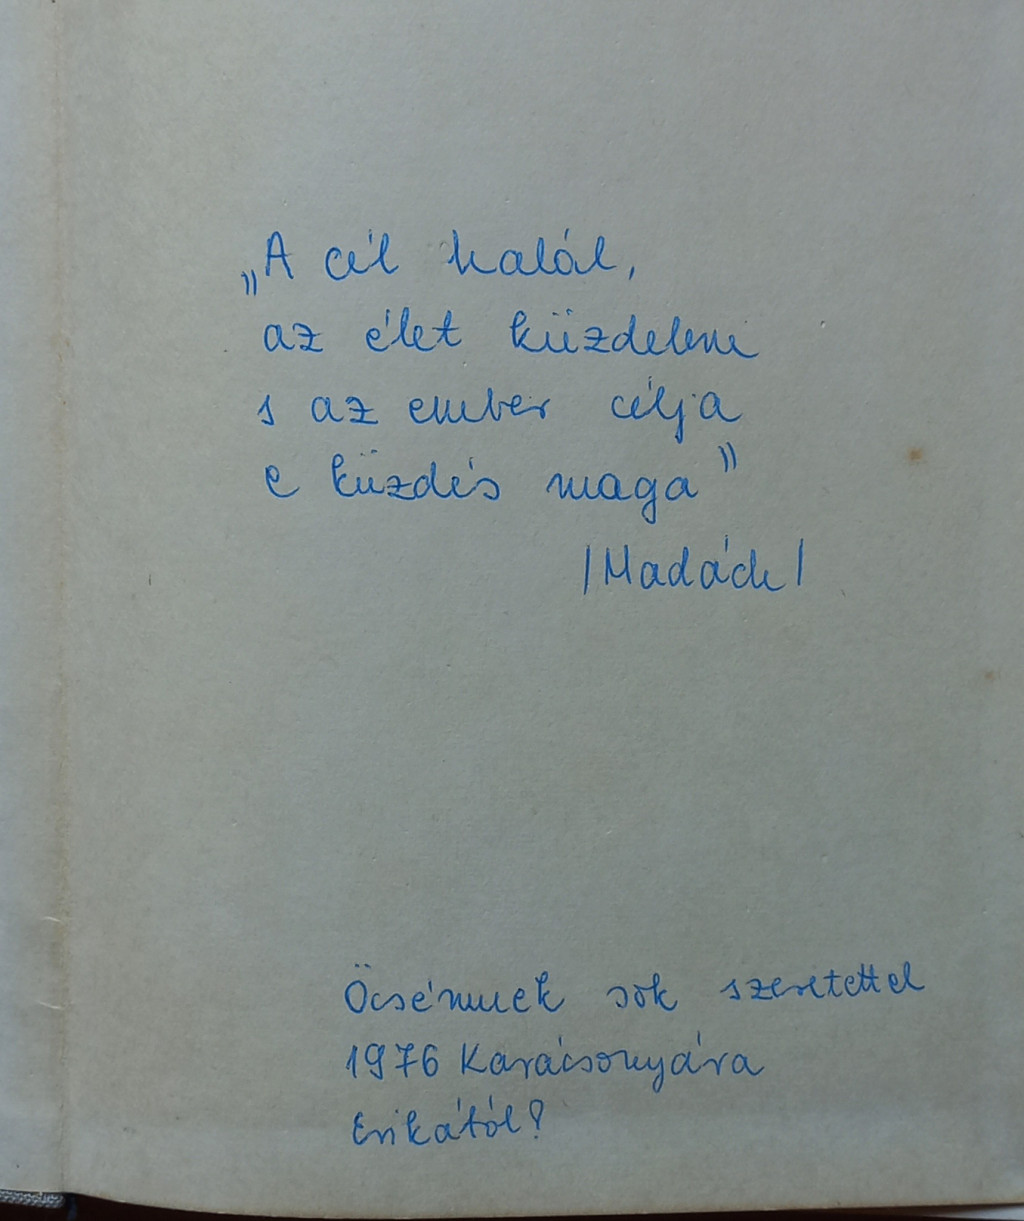 „A cél halál,
az élet küzdelem
s az ember célja
e küzdés maga"
/Madách/
Öcsémnek sok szeretettel
1976 Karácsonyára
Erikától?